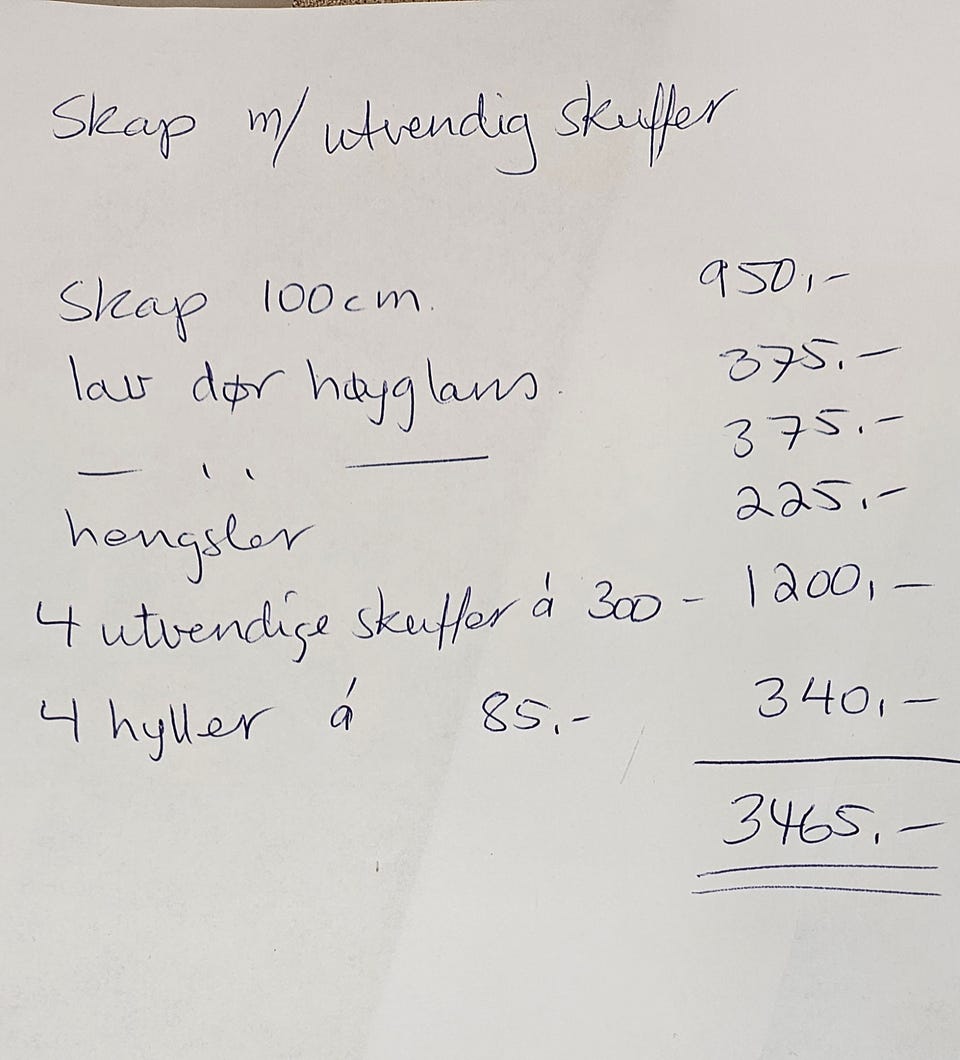 Skap m/ utvendig skuffer
Skap 100cm. 950,-
lav dør høyglans. 375.-
— ,, — 375.-
hengsler 225,-
4 utvendige skuffer á 300 - 1200,-
4 hyller á 85.- 340,-
3465.-